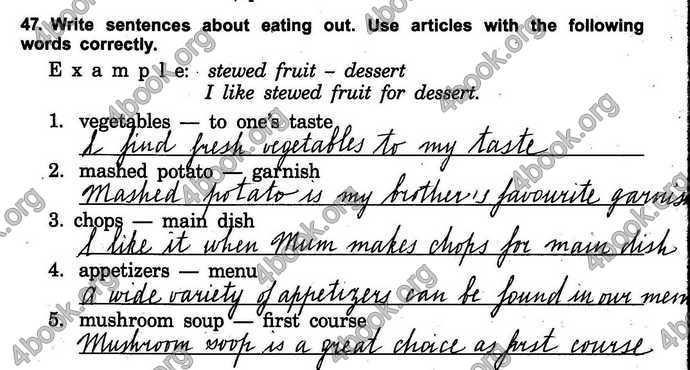 47. Write sentences about eating out. Use articles with the following
words correctly.
Example: stewed fruit – dessert
I like stewed fruit for dessert.
1. vegetables — to one's taste
I find fresh vegetables to my taste
2. mashed potato — garnish
Mashed potato is my brother's favourite garnish
3. chops — main dish
I like it when Mum makes chops for main dish
4. appetizers — menu
A wide variety of appetizers can be found in our men
5. mushroom soup — first course
Mushroom soop is a great choice as first course
4book.org